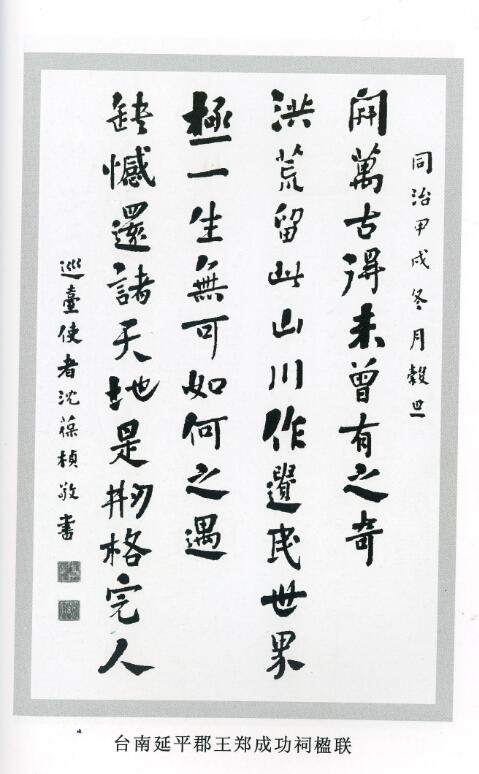 同治甲戌冬月穀旦
開萬古得未曾有之奇
洪荒留此山川作遺民世界
極一生無可如何之遇
缺憾還諸天地是刱格完人
巡臺使者沈葆楨敬書
台南延平郡王郑成功祠楹联